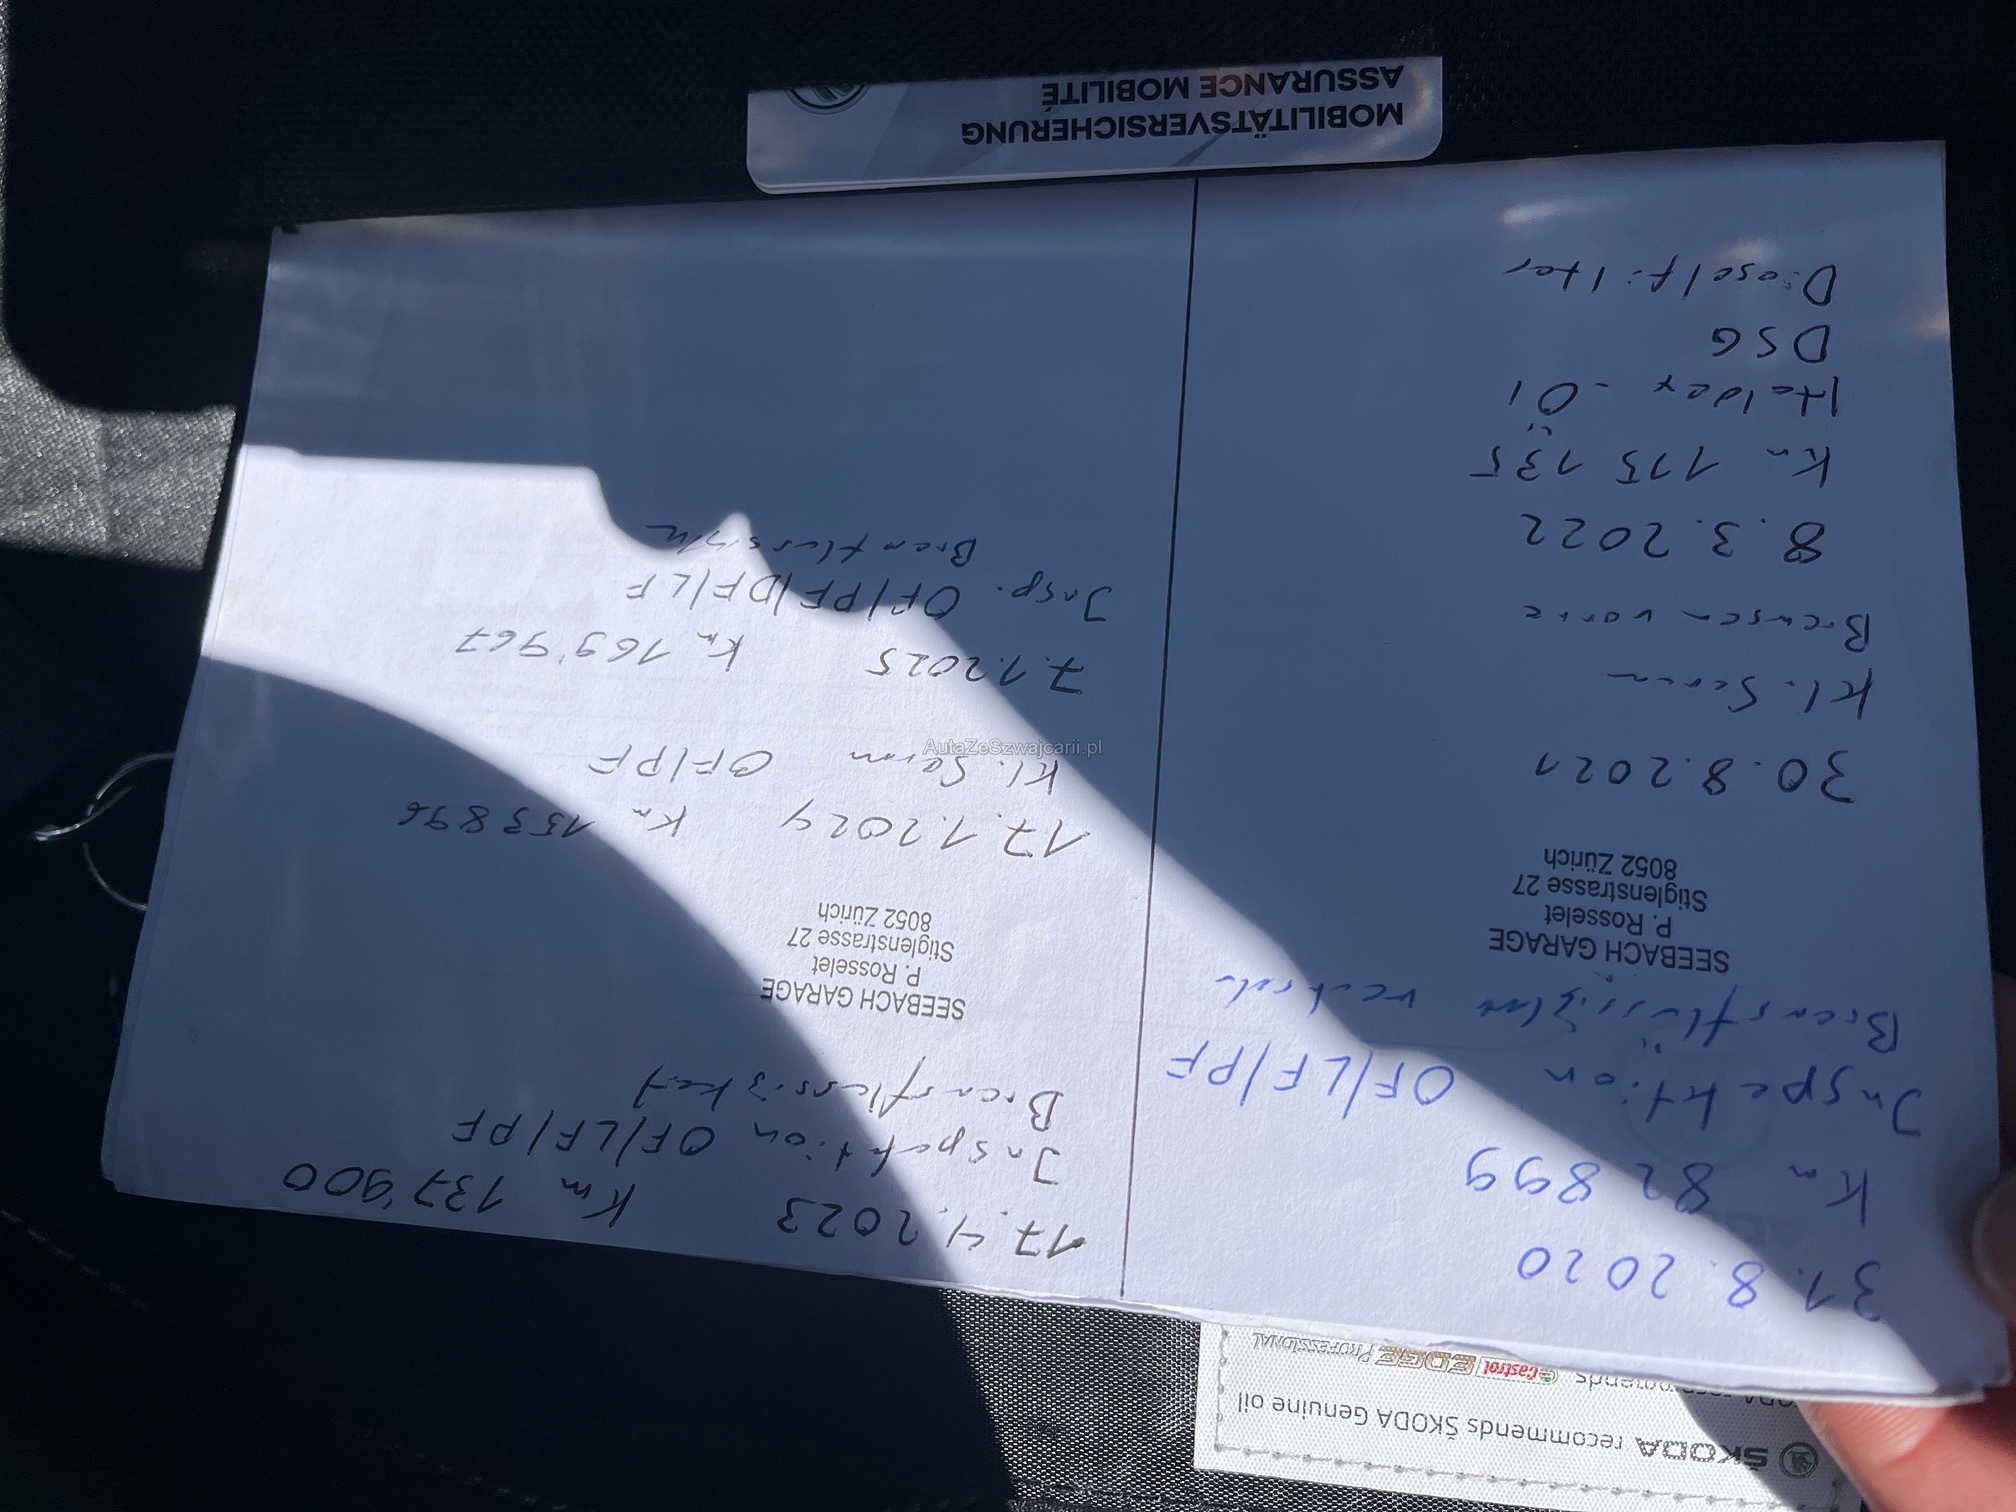 ŠKODA recommends ŠKODA Genuine oil
Castrol EDGE PROFESSIONAL
31.8.2020
Km 82899
Inspektion OF/LF/PF
Bremsflüssigkeit
SEEBACH GARAGE
P. Rosselet
Stiglenstrasse 27
8052 Zürich
30.8.2021
Kl. Servic
Bremsen vorne
8.3.2022
Km 115 135
Haldex - Öl
DSG
Dieselfilter
17.4.2023 Km 137'900
Inspektion OF/LF/PF
Bremsflüssigkeit
SEEBACH GARAGE
P. Rosselet
Stiglenstrasse 27
8052 Zürich
17.1.2024 Km 153896
Kl. Servic OF/PF
7.1.2025 Km 169'967
Insp. OF/PF/DF/LF
MOBILITÄTSVERSICHERUNG
ASSURANCE MOBILITÉ
AutaZeSzwajcarii.pl